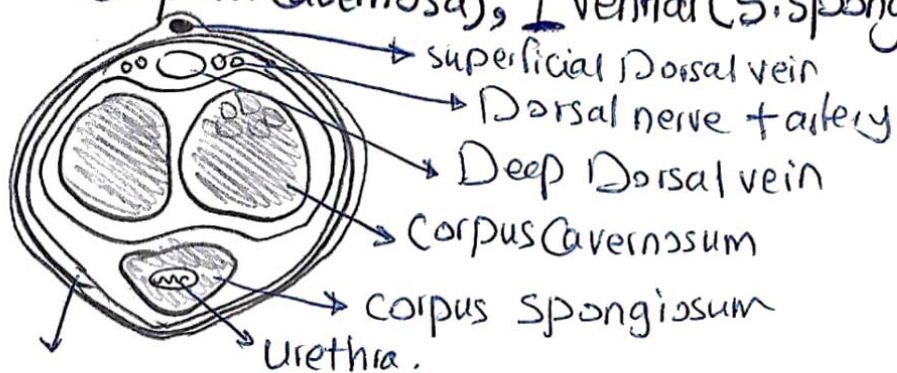 Cavernosa), 1 ventral (S. spong
superficial Dorsal vein
Dorsal nerve + artery
Deep Dorsal vein
Corpus Cavernosum
corpus spongiosum
urethra.